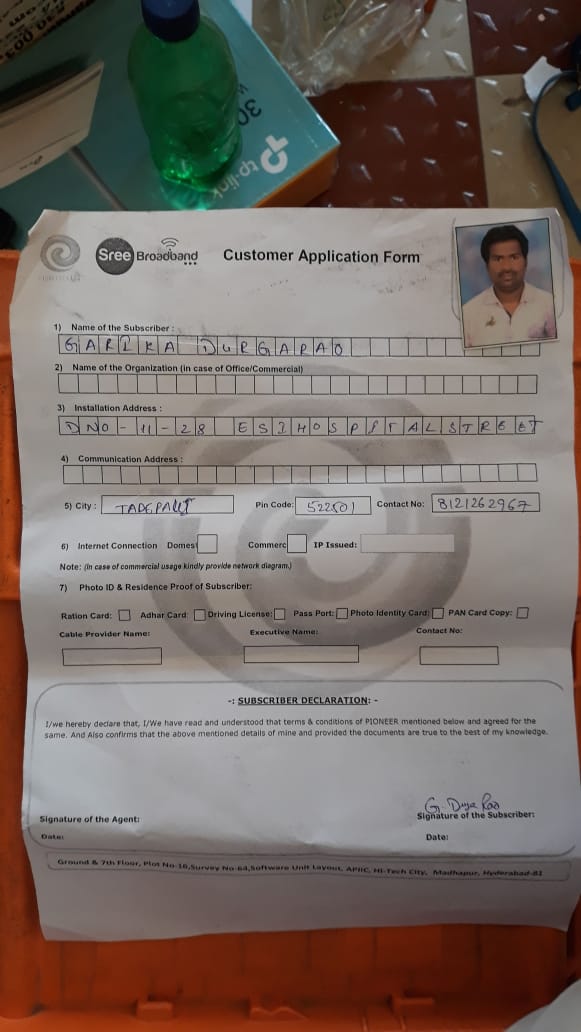 tp-link
Sree Broadband
Customer Application Form
1) Name of the Subscriber :
GARIKA DURGARAO
2) Name of the Organization (in case of Office/Commercial)
3) Installation Address :
DNO-11-28 ESI HOSPITAL STREET
4) Communication Address :
5) City : TADEPALLI Pin Code: 522501 Contact No: 8121262967
6) Internet Connection Domest Commerc IP Issued:
Note: (in case of commercial usage kindly provide network diagram.)
7) Photo ID & Residence Proof of Subscriber:
Ration Card: Adhar Card: Driving License: Pass Port: Photo Identity Card: PAN Card Copy:
Cable Provider Name: Executive Name: Contact No:
-: SUBSCRIBER DECLARATION: -
I/we hereby declare that, I/We have read and understood that terms & conditions of PIONEER mentioned below and agreed for the
same. And Also confirms that the above mentioned details of mine and provided the documents are true to the best of my knowledge.
G. Durga Rao
Signature of the Agent: Signature of the Subscriber:
Date: Date:
Ground & 7th Floor, Plot No-16,Survey No-64,Software Unit Layout, APIIC, Hi-Tech City, Madhapur, Hyderabad-81